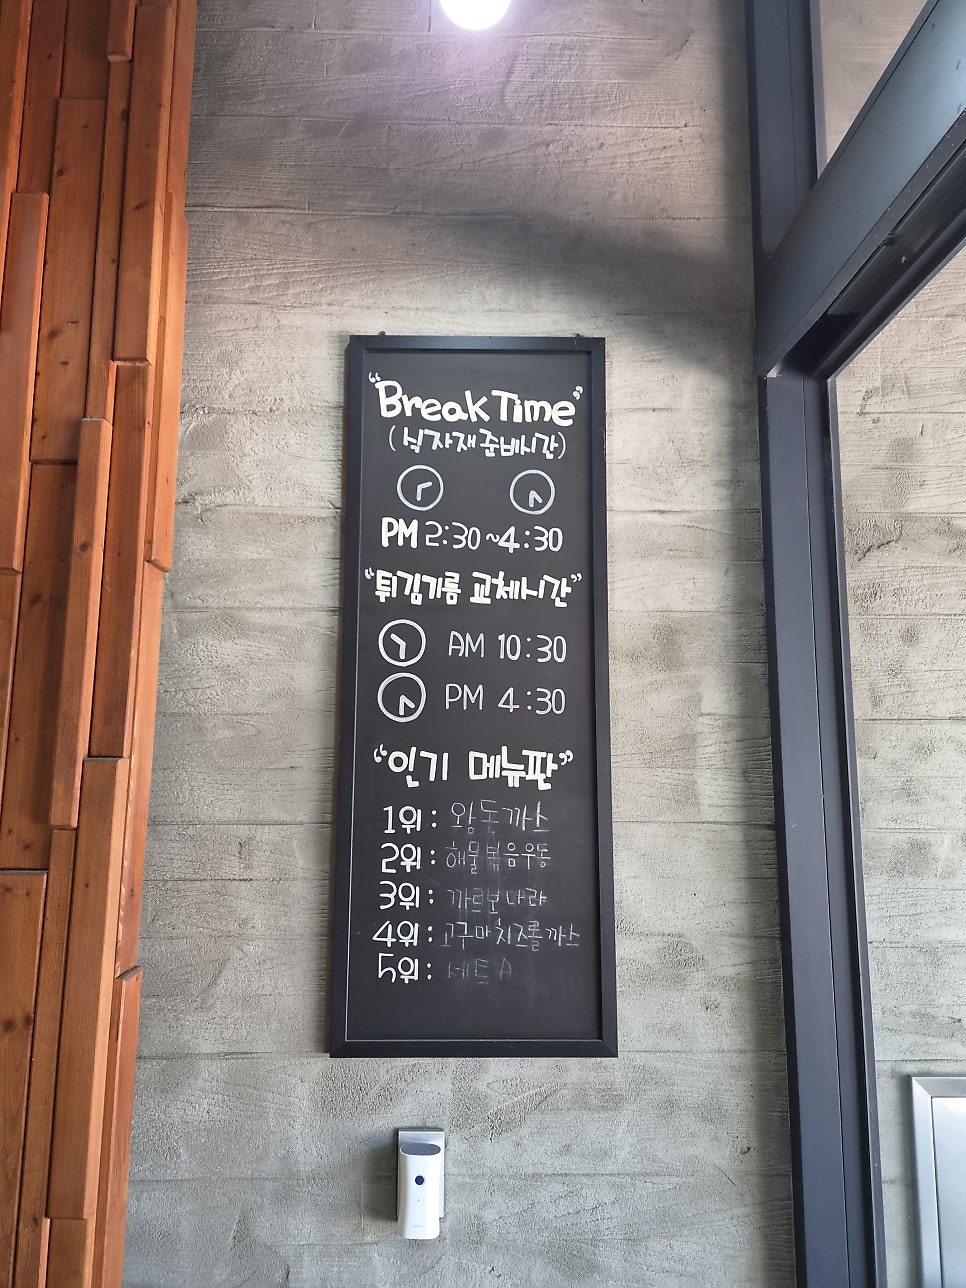 “Break Time”
(식자재 준비시간)
PM 2:30~4:30
“튀김기름 교체시간”
AM 10:30
PM 4:30
“인기 메뉴판”
1위: 왕돈까스
2위: 해물볶음우동
3위: 까르보나라
4위: 고구마치즈롤까스
5위: 세트A